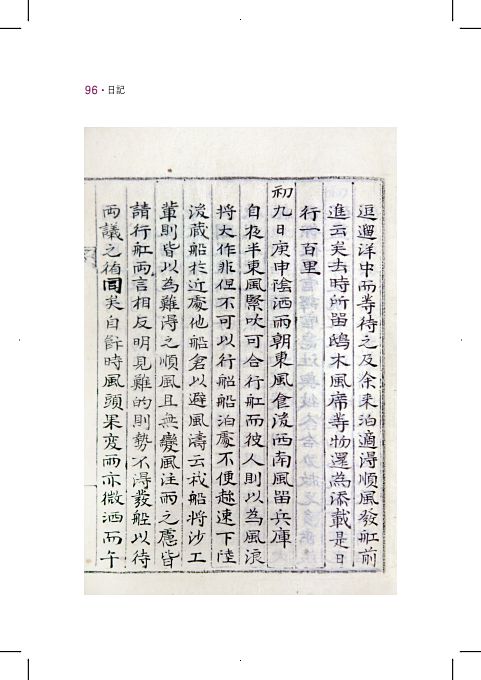 96 · 日記
逗遛洋中而等待之及余来泊適淂順風發舡前
進云矣去時所留鴟木風席等物還為添載是日
行一百里
初九日庚申陰洒雨朝東風食後西南風留兵庫
自夜半東風緊吹可合行舡而彼人則以為風浪
将大作非但不可以行船船泊處不便趂速下陸
後藏船於近處他船倉以避風濤云我船将沙工
輩則皆以為難淂之順風且無變風注雨之慮皆
請行舡兩言相反明見難的則勢不淂發船以待
両議之循同矣自酐時風頭果変雨亦微洒而午